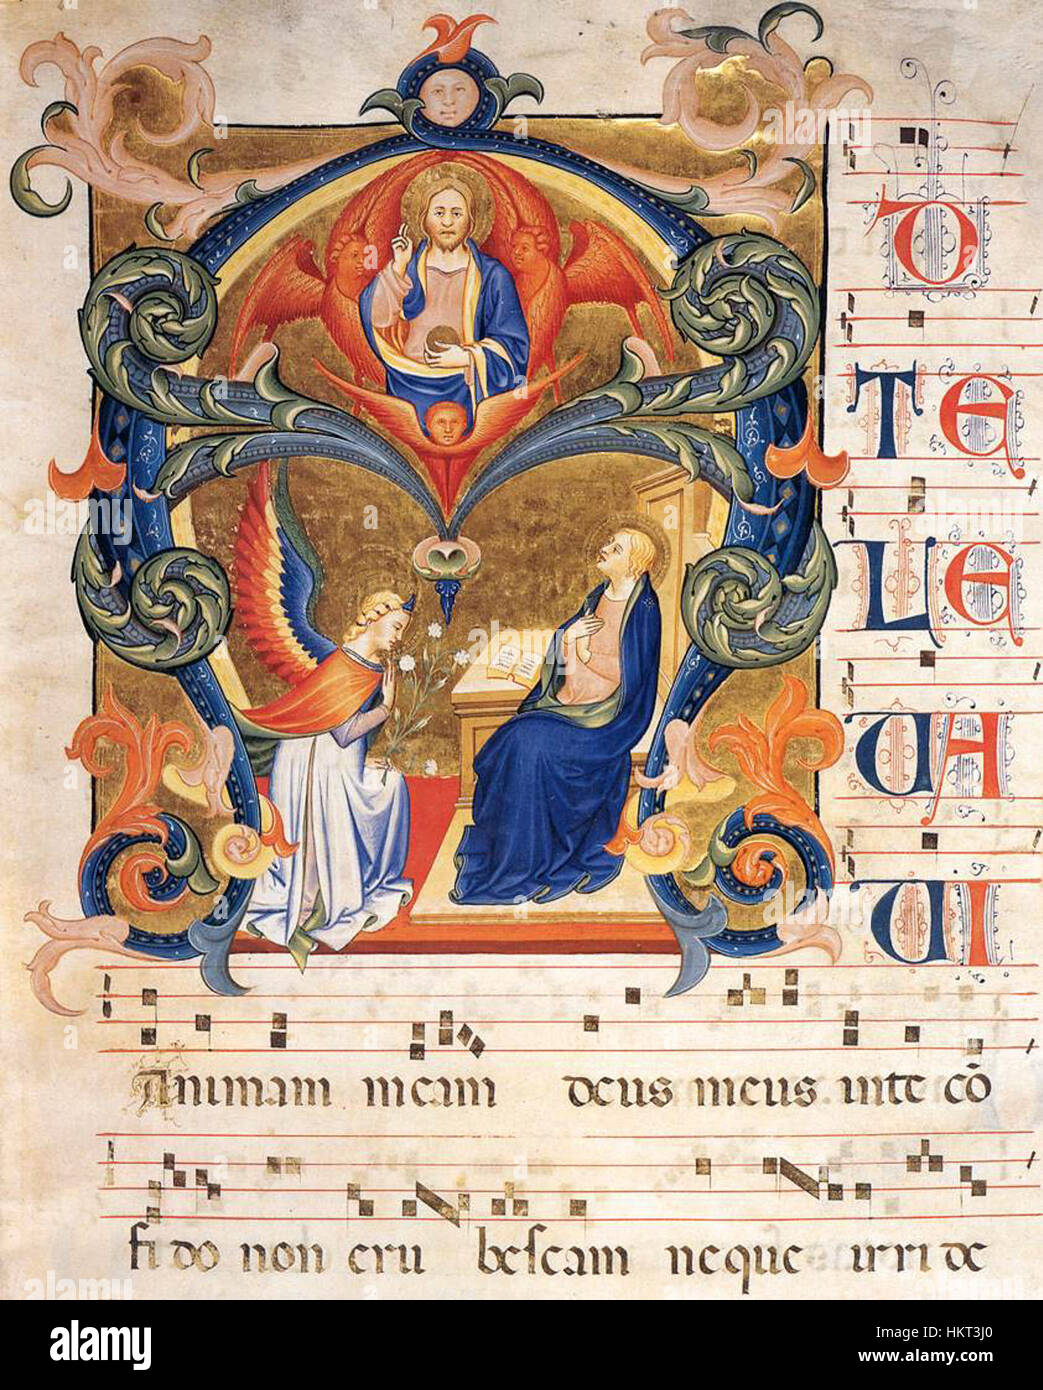 D
TE
LE
UA
UI
Animam meam deus meus inte cō
fi do non eru beſcam neque irri de
alamy
Image ID: HKT3J0
www.alamy.com